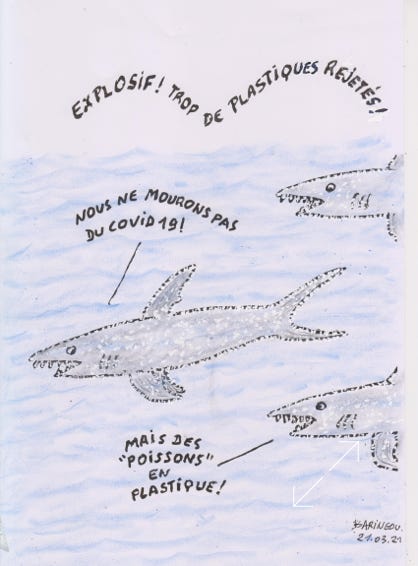 EXPLOSIF! TROP DE PLASTIQUES REJETÉS!
NOUS NE MOURONS PAS
DU COVID 19!
MAIS DES
"POISSONS"
EN
PLASTIQUE!
21.03.21